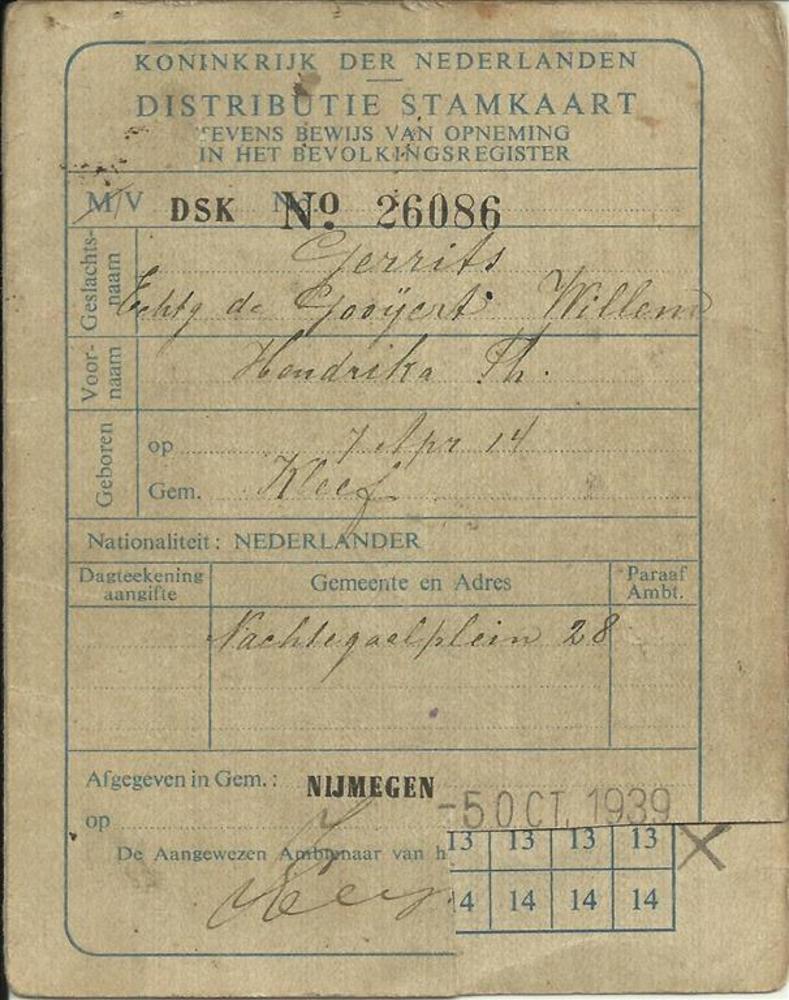 KONINKRIJK DER NEDERLANDEN
DISTRIBUTIE STAMKAART
TEVENS BEWIJS VAN OPNEMING
IN HET BEVOLKINGSREGISTER
M/V DSK No. Nº 26086
Geslachts-
naam
Gerrits
Echtg de Gooijert Willem
Voor-
naam
Hendrika Th.
Geboren
op 7 Apr 14
Gem. Kleef
Nationaliteit: NEDERLANDER
Dagteekening
aangifte
Gemeente en Adres
Paraaf
Ambt.
Nachtegaalplein 28
Afgegeven in Gem.: NIJMEGEN
op -5 OCT. 1939
De Aangewezen Ambtenaar van h
13 13 13 13 X
14 14 14 14